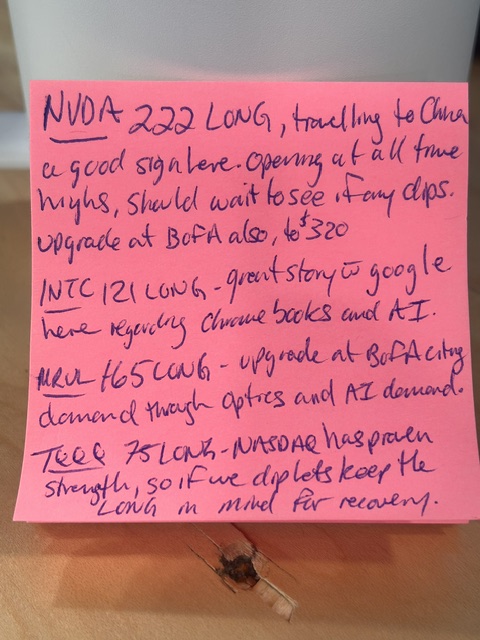 NVDA 222 LONG, travelling to China
a good sign here. Opening at all time
highs, should wait to see if any dips.
upgrade at BofA also, to $320
INTC 121 LONG - great story w google
here regarding Chromebooks and AI.
MRVL 165 LONG - upgrade at BofA citing
demand through optics and AI demand.
TQQQ 75 LONG - NASDAQ has proven
strength, so if we dip lets keep the
LONG in mind for recovery.